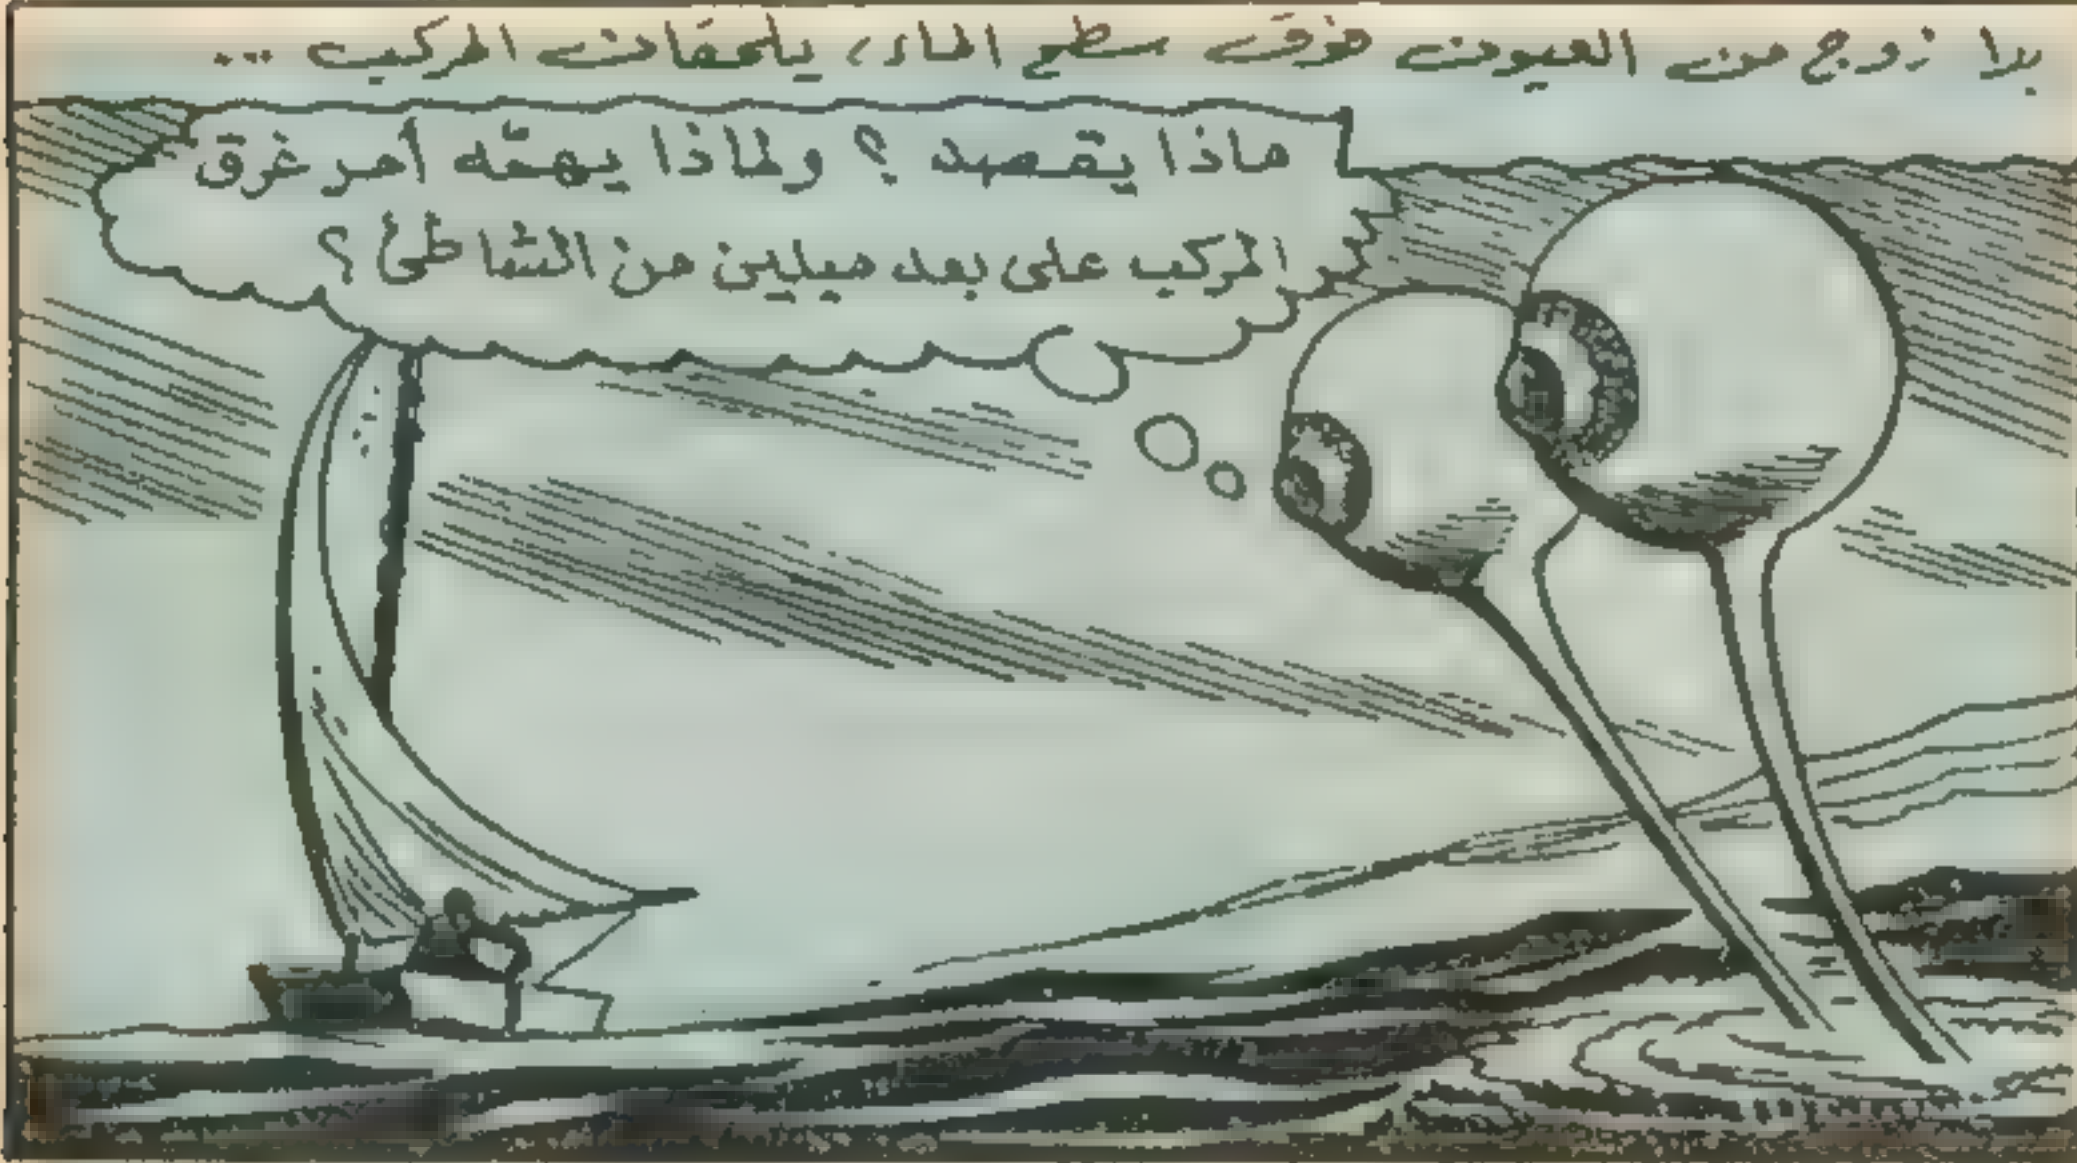 بدا زوج من العيون فوق سطح الماء، يلحقان المركب ...
ماذا يقصد ؟ ولماذا يهمّه أمر غرق
المركب على بعد ميلين من الشاطئ ؟